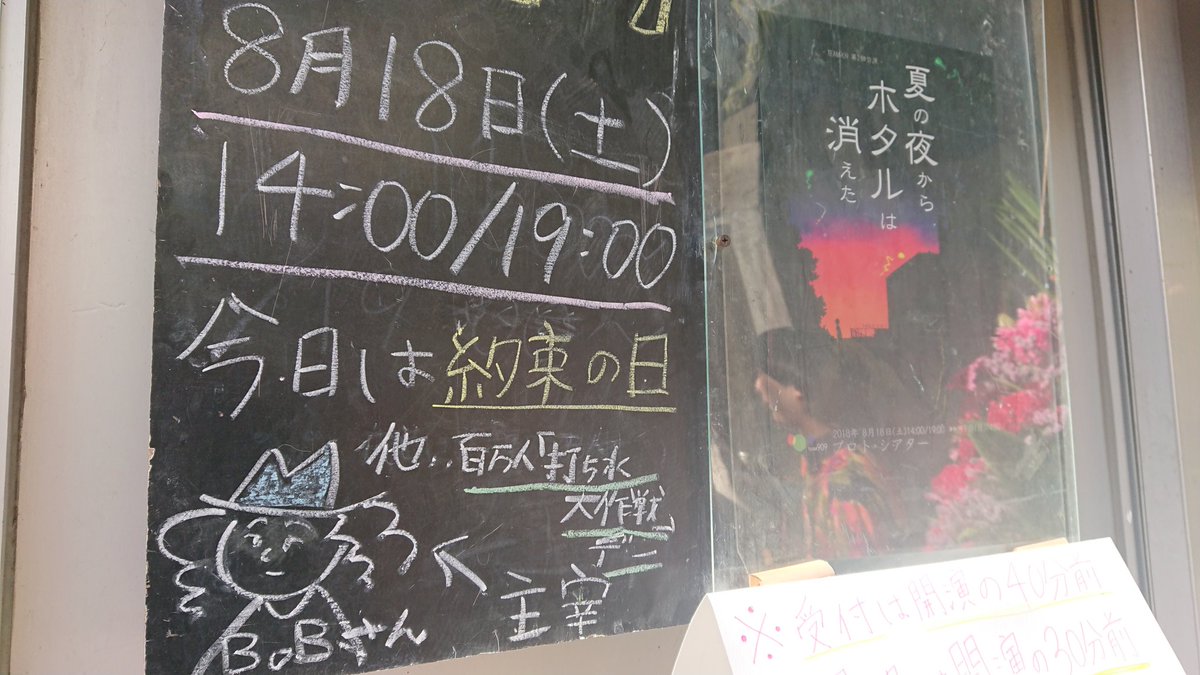 8月18日(土)
14:00/19:00
今日は約束の日
他..百万人「打ち水
大作戦」
デー
主宰
BoBさん
夏の夜から
ホタルは
消えた
2018年 8月18日(土)14:00/19:00
プロト・シアター
※受付は開演の40分前
開演の30分前